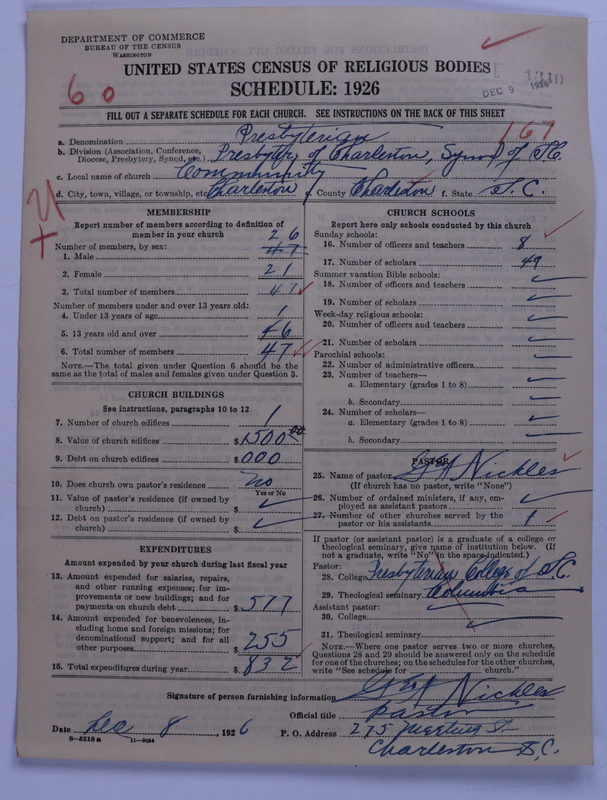 DEPARTMENT OF COMMERCE
BUREAU OF THE CENSUS
WASHINGTON
UNITED STATES CENSUS OF RELIGIOUS BODIES
SCHEDULE: 1926
60
1310
DEC 9 1926
FILL OUT A SEPARATE SCHEDULE FOR EACH CHURCH. SEE INSTRUCTIONS ON THE BACK OF THIS SHEET
a. Denomination Presbyterian 167
b. Division (Association, Conference, Diocese, Presbytery, Synod, etc.) Presbytery of Charleston, Synod of S.C.
c. Local name of church Community
d. City, town, village, or township, etc. Charleston e. County Charleston f. State S.C.
MEMBERSHIP
Report number of members according to definition of
member in your church
Number of members, by sex:
1. Male 47 26
2. Female 21
3. Total number of members 47
Number of members under and over 13 years old:
4. Under 13 years of age 1
5. 13 years old and over 46
6. Total number of members 47
NOTE.—The total given under Question 6 should be
same as the total of males and females given under Question 3.
CHURCH BUILDINGS
See instructions, paragraphs 10 to 12
7. Number of church edifices 1
8. Value of church edifices $1500.00
9. Debt on church edifices $000
10. Does church own pastor's residence No
Yes or No
11. Value of pastor's residence (if owned by
church) $
12. Debt on pastor's residence (if owned by
church) $
EXPENDITURES
Amount expended by your church during last fiscal year
13. Amount expended for salaries, repairs,
and other running expenses; for im-
provements or new buildings; and for
payments on church debt $577
14. Amount expended for benevolences, in-
cluding home and foreign missions; for
denominational support; and for all
other purposes $255
15. Total expenditures during year $832
CHURCH SCHOOLS
Report here only schools conducted by this church
Sunday schools:
16. Number of officers and teachers 8
17. Number of scholars 49
Summer vacation Bible schools:
18. Number of officers and teachers
19. Number of scholars
Week-day religious schools:
20. Number of officers and teachers
21. Number of scholars
Parochial schools:
22. Number of administrative officers
23. Number of teachers—
a. Elementary (grades 1 to 8)
b. Secondary
24. Number of scholars—
a. Elementary (grades 1 to 8)
b. Secondary
PASTOR
25. Name of pastor Nickles
(If church has no pastor, write "None")
26. Number of ordained ministers, if any, em-
ployed as assistant pastors
27. Number of other churches served by the
pastor or his assistants 1
If pastor (or assistant pastor) is a graduate of a college or
theological seminary, give name of institution below. (If
not a graduate, write "No" in the space indicated.)
Pastor:
28. College Presbyterian College of S.C.
29. Theological seminary Columbia
Assistant pastor:
30. College
31. Theological seminary
NOTE.—Where one pastor serves two or more churches,
Questions 28 and 29 should be answered only on the schedule
for one of the churches; on the schedules for the other churches,
write "See schedule for church."
Signature of person furnishing information Nickles
Official title Pastor
Date Dec 8, 1926 P. O. Address 275 Meeting St
Charleston S.C.
8—5518 a 11—9054